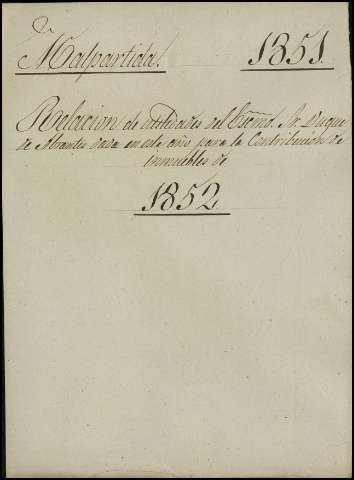 Malpartida. 1851.
Relacion de utilidades del Escmo. Sr. Duque
de Abrantes dada en este año para la Contribucion de
inmuebles de
1852